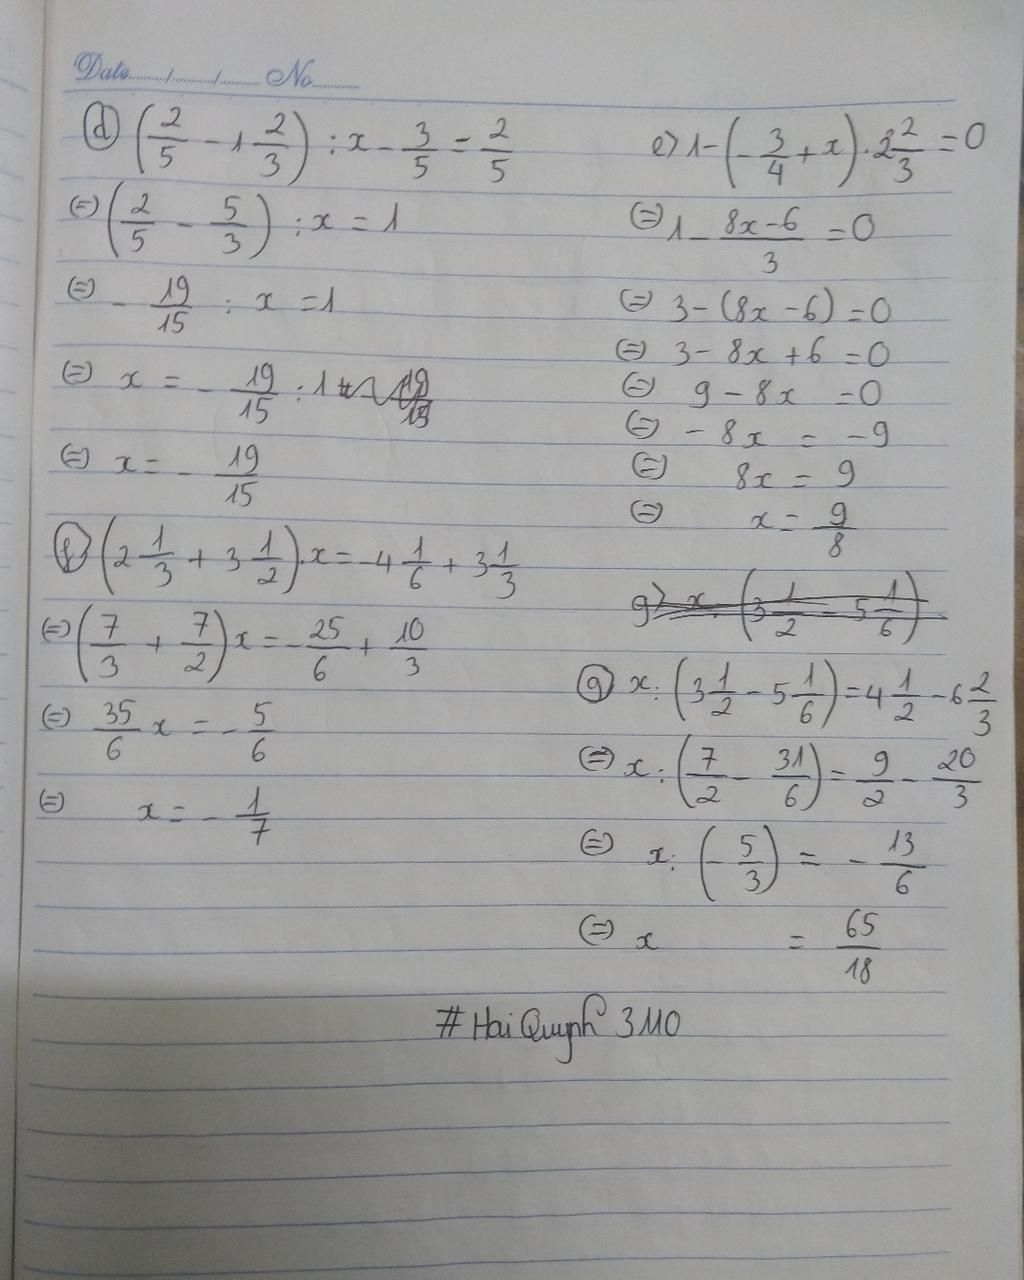 Date......./......../........ No..........
d) (2/5 - 1 2/3) : x - 3/5 = 2/5
(=) (2/5 - 5/3) : x = 1
(=) - 19/15 : x = 1
(=) x = - 19/15 : 1
(=) x = - 19/15
f) (2 1/3 + 3 1/2).x = -4 1/6 + 3 1/3
(=) (7/3 + 7/2)x = - 25/6 + 10/3
(=) 35/6 x = - 5/6
(=) x = - 1/7
e) 1 - (- 3/4 + x) . 2 2/3 = 0
(=) 1 - 8x-6/3 = 0
(=) 3 - (8x - 6) = 0
(=) 3 - 8x + 6 = 0
(=) 9 - 8x = 0
(=) - 8x = -9
(=) 8x = 9
(=) x = 9/8
g) x : (3 1/2 - 5 1/6)
g) x : (3 1/2 - 5 1/6) = 4 1/2 - 6 2/3
(=) x : (7/2 - 31/6) = 9/2 - 20/3
(=) x : (- 5/3) = - 13/6
(=) x = 65/18
# Hai Quynh 3110